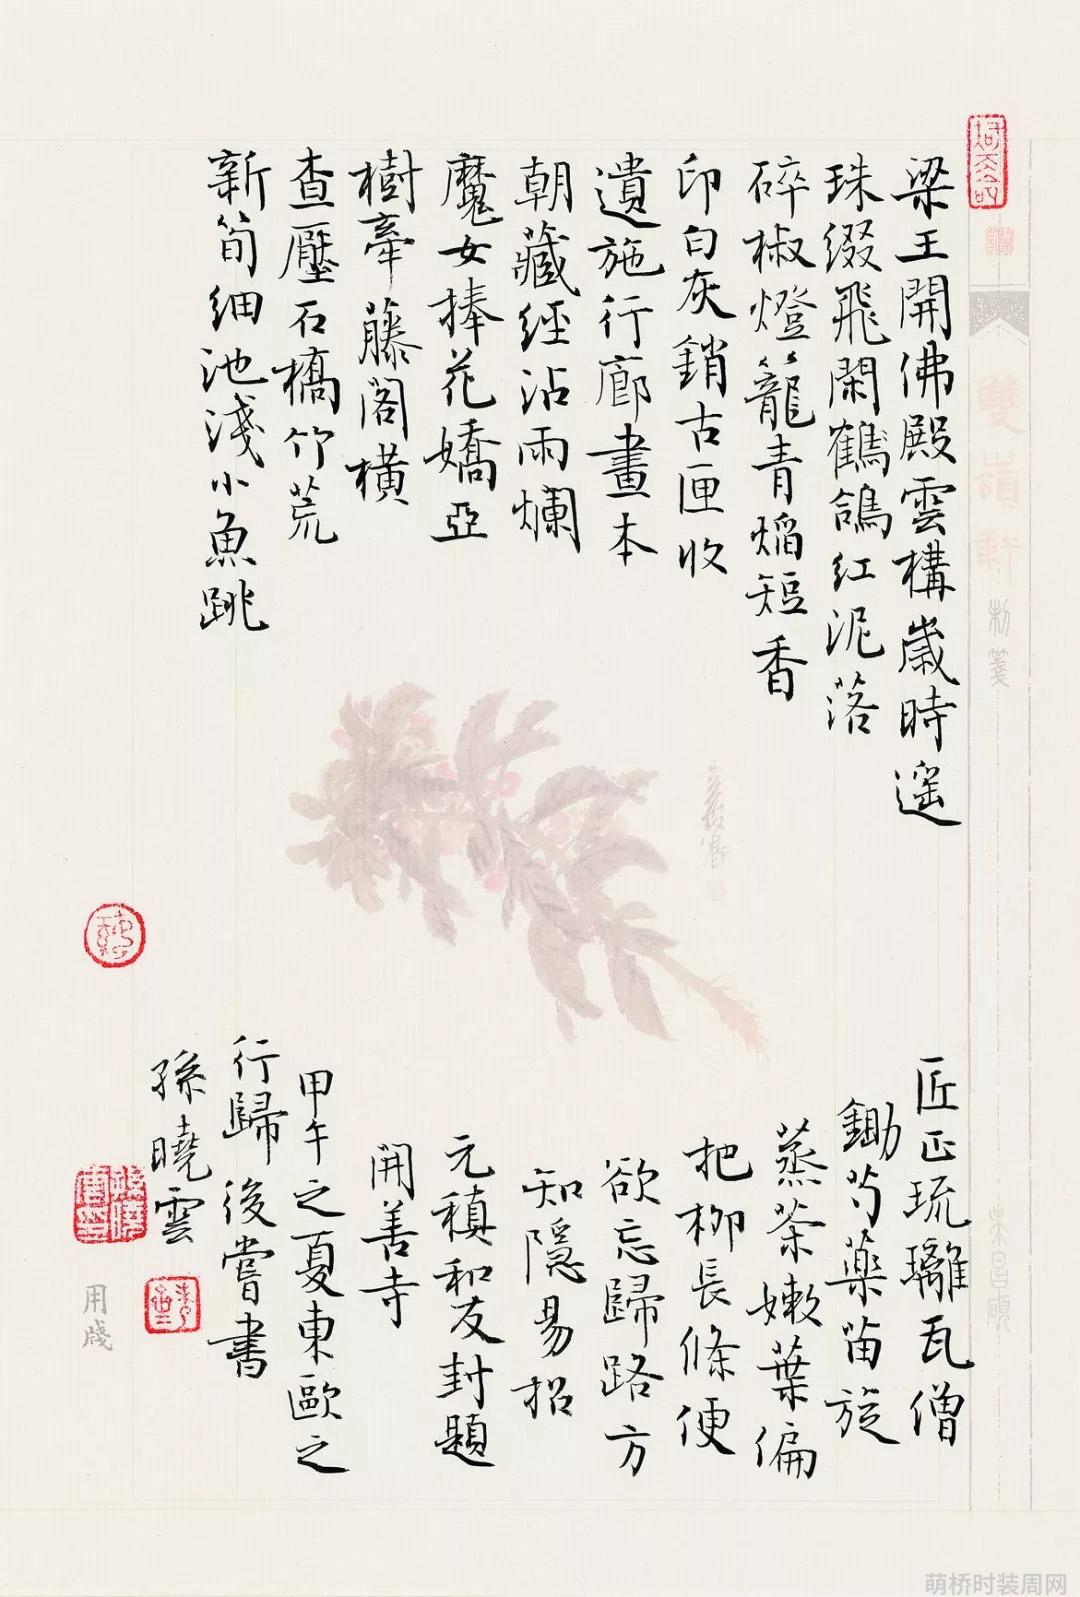 梁王開佛殿雲構歲時遥
珠缀飛閑鶴鴿红泥落
碎椒燈籠青焰短香
印白灰銷古匣收
遺施行廊畫本
朝藏經沾雨爛
魔女捧花嬌亞
樹牽藤阁橫
查壓石橋竹荒
新筍细池淺小魚跳
匠正琉璃瓦僧
鋤芍藥苗旋
蒸茶嫩葉偏
把柳長條便
欲忘歸路方
知隱易招
元稹和友封題
開善寺
甲午之夏東歐之
行歸後嘗書
孫曉雲
雙嶺軒
制箋
朱昌頤
用牋
萌桥时装周网